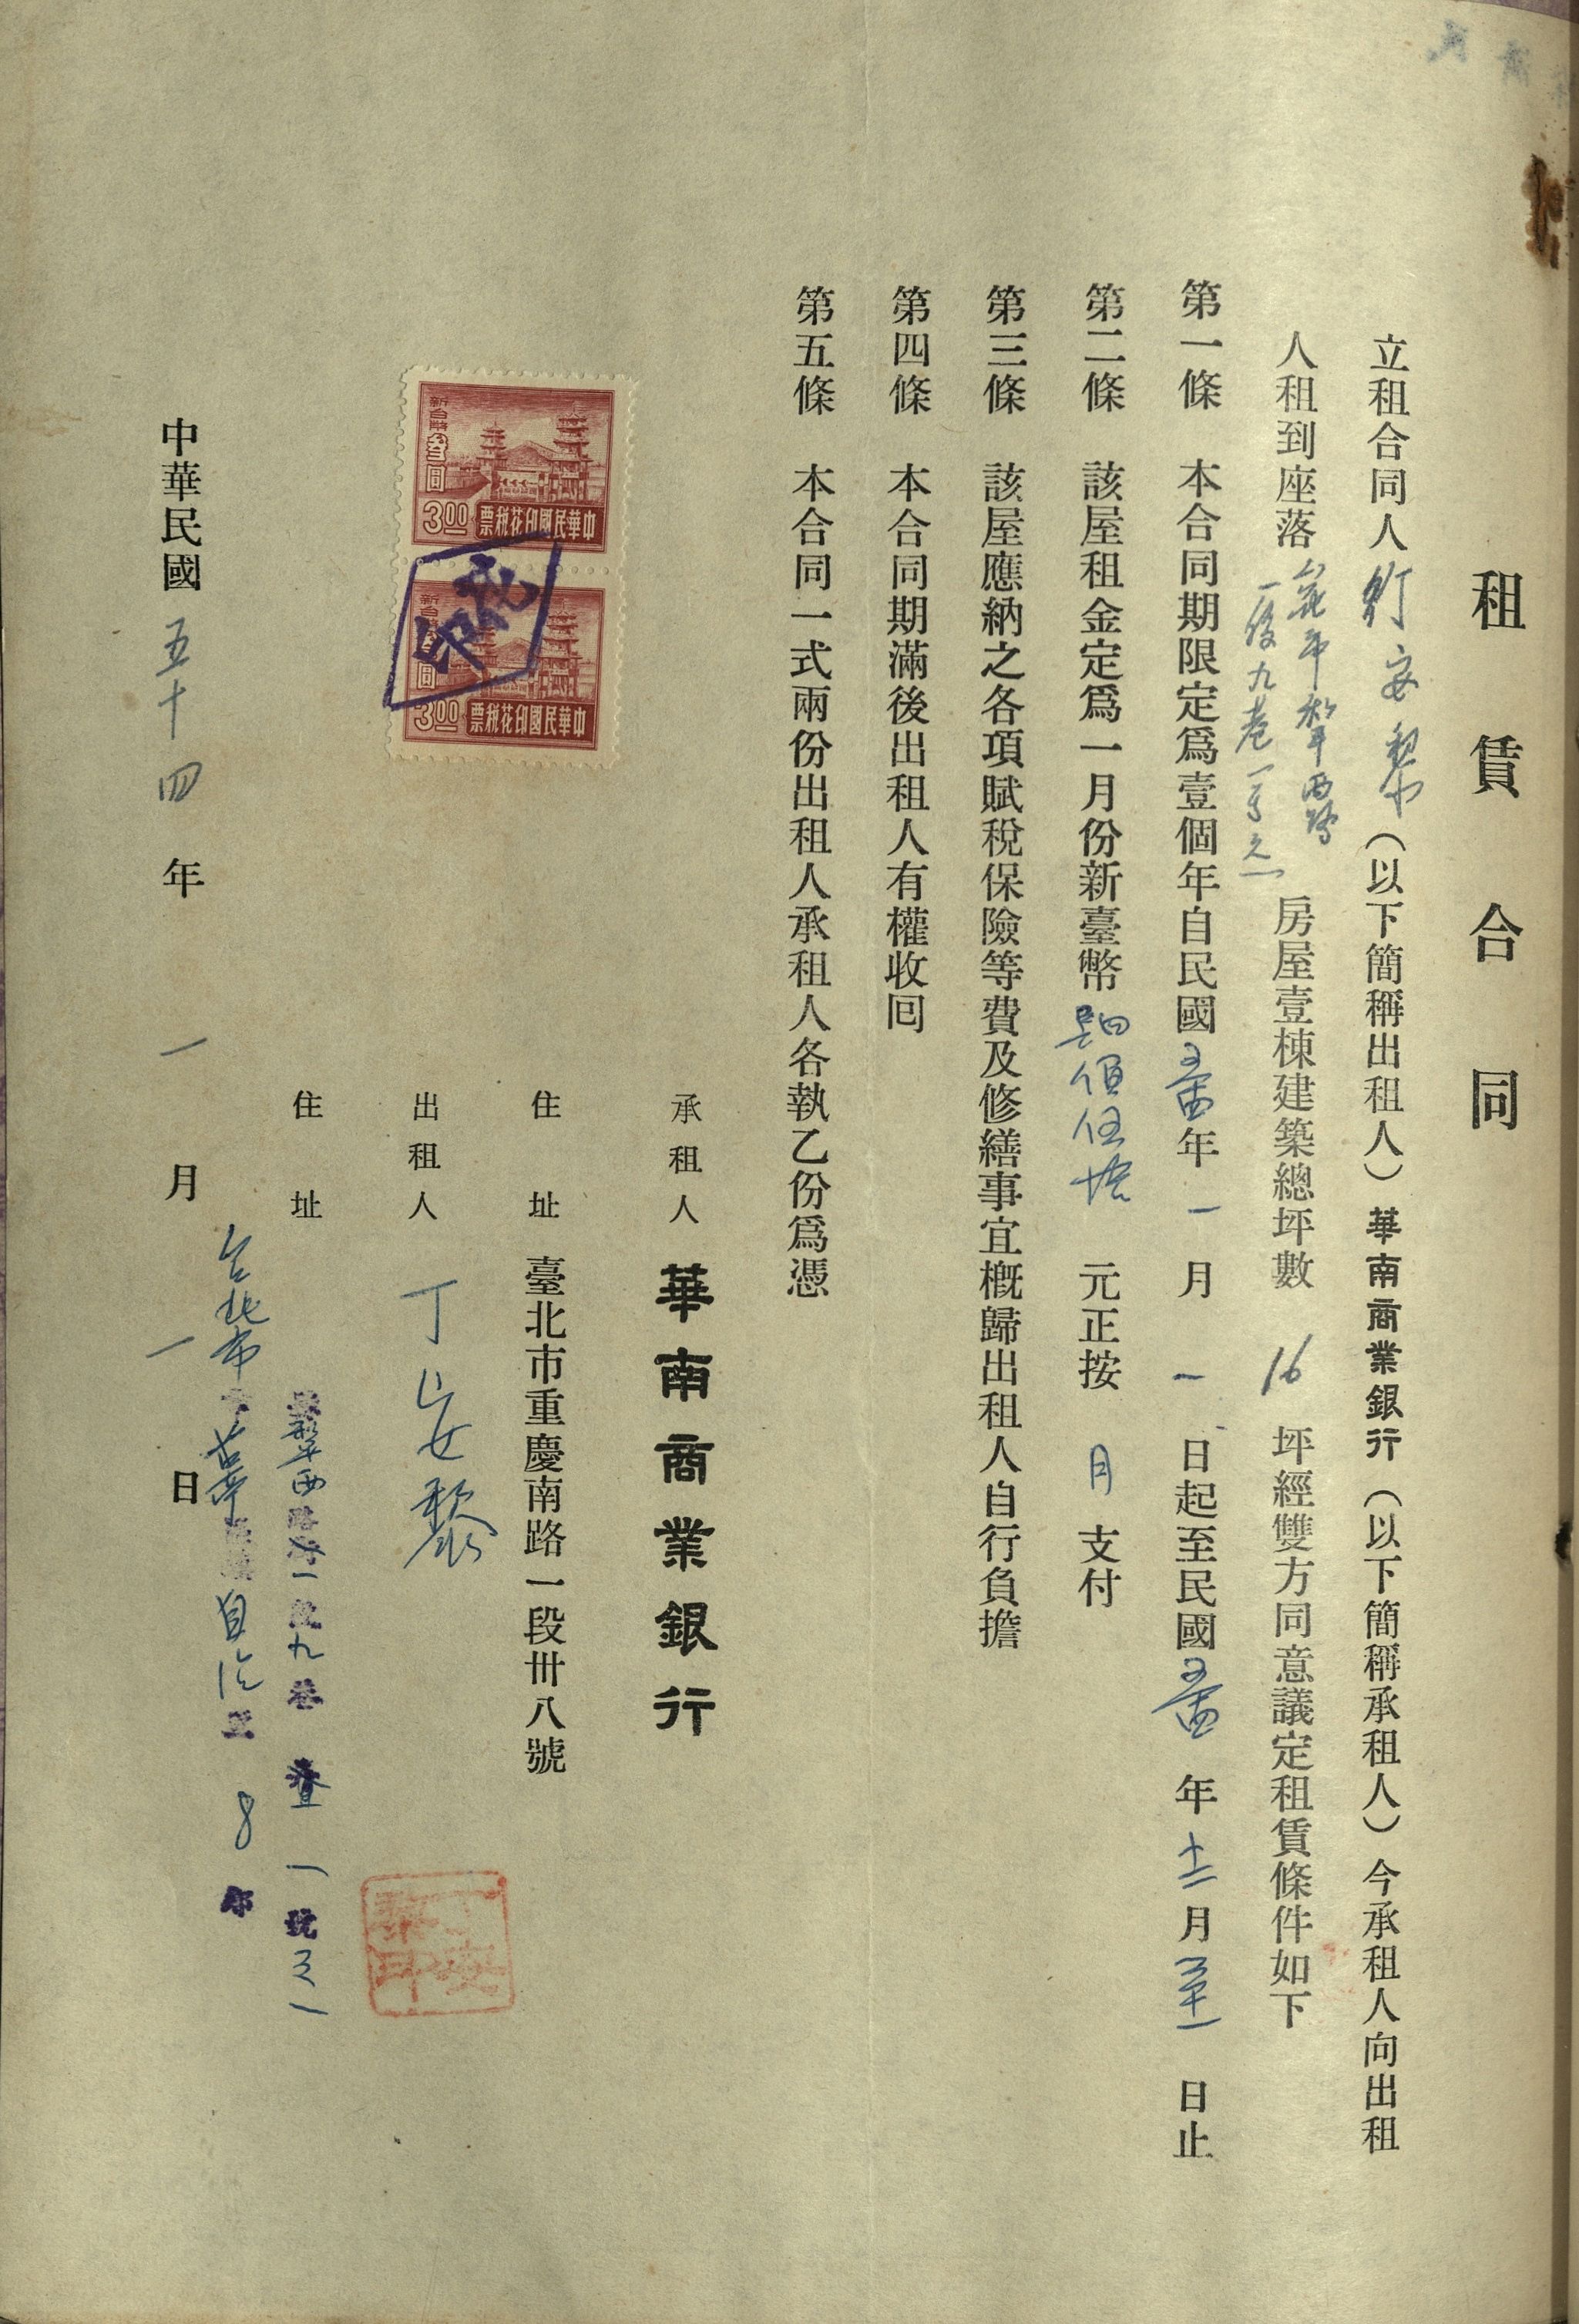 租賃合同
立租合同人 丁安黎（以下簡稱出租人）華南商業銀行（以下簡稱承租人）今承租人向出租
人租到座落 一段九巷一号之一 房屋壹棟建築總坪數 16 坪經雙方同意議定租賃條件如下
第一條 本合同期限定爲壹個年自民國 年 一 月 一 日起至民國 年 十二 月 卅一 日止
第二條 該屋租金定爲一月份新臺幣 佰伍拾 元正按 月 支付
第三條 該屋應納之各項賦稅保險等費及修繕事宜概歸出租人自行負擔
第四條 本合同期滿後出租人有權收囘
第五條 本合同一式兩份出租人承租人各執乙份爲憑
承租人 華南商業銀行
住址 臺北市重慶南路一段卅八號
新台幣叁圓
3.00
中華民國印花稅票
新台幣叁圓
3.00
中華民國印花稅票
出租人 丁安黎
丁安黎印
住址 西 一 九巷 一號之一
台北市 自治里 8 鄰
中華民國 五十四 年 一 月 一 日